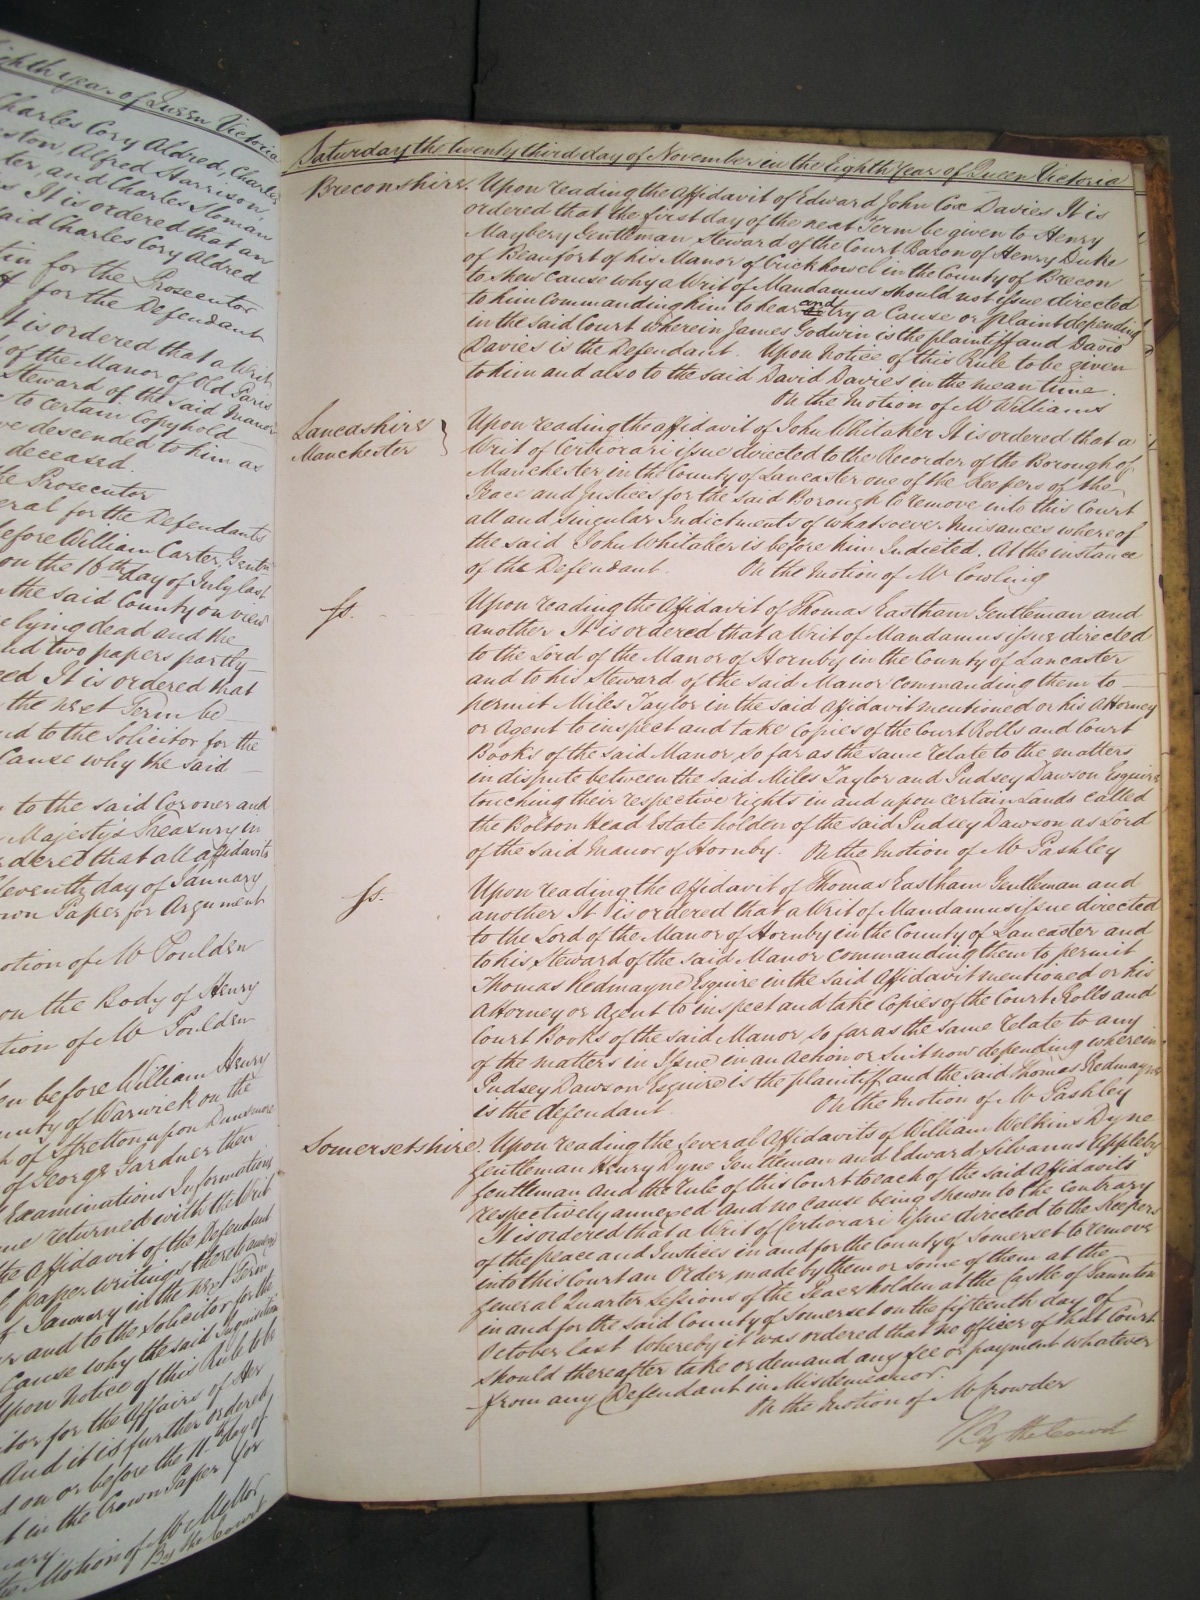 ighth year of Queen Victoria
Charles Cory Aldred, Charles
ston, Alfred Harrison,
ter, and Charles Sloman
s It is ordered that an
said Charles Cory Aldred
tin for the Prosecutor
for the Defendant
t is ordered that a Writ
of the Manor of Old Paris
Steward of the said Manor
to certain Copyhold
ve descended to him as
deceased.
he Prosecutor
eral for the Defendants
before William Carter, Gentn
on the 18th day of July last
the said County on view
e lying dead and the
nd two papers partly
eed It is ordered that
the next Term be
nd to the Solicitor for the
Cause why the said
to the said Coroner and
Majesty's Treasury in
rdered that all affidavits
Eleventh day of January
own Paper for Argument
otion of Mr Poulden
on the Body of Henry
tion of Mr Poulden
en before William Henry
unty of Warwick on the
h of Stretton upon Dunsmore
of George Gardner then
Examinations Informations
me returned with the Writ
the Affidavit of the Defendant
paper writings thereto annexed
of January in the next Term
r and to the Solicitor for the
Cause why the said Inquisition
Upon Notice of this Rule to be
itor for the Affairs of Her
And it is further ordered
d on or before the 11th day of
t in the Crown Paper for
uary.
the Motion of Mr Mellor
By the Court
Saturday the twenty third day of November in the Eighth Year of Queen Victoria
Breconshire. Upon reading the Affidavit of Edward John Cox Davies It is
ordered that the first day of the next Term be given to Henry
Maybery Gentleman Steward of the Court Baron of Henry Duke
of Beaufort of his Manor of Crickhowel in the County of Brecon
to shew Cause why a Writ of Mandamus should not issue directed
to him Commanding him to hear and try a Cause or plaint depending
in the said Court wherein James Godwin is the plaintiff and David
Davies is the Defendant. Upon Notice of this Rule to be given
to him and also to the said David Davies in the mean time.
On the Motion of Mr Williams
Lancashire Upon reading the affidavit of John Whitaker It is ordered that a
Manchester Writ of Certiorari issue directed to the Recorder of the Borough of
Manchester in the County of Lancaster one of the Keepers of the
Peace and Justices for the said Borough to remove into this Court
all and singular Indictments of whatsoever Nuisances whereof
the said John Whitaker is before him Indicted. At the instance
of the Defendant. On the Motion of Mr Cowling
ss. Upon reading the Affidavit of Thomas Eastham Gentleman and
another It is ordered that a Writ of Mandamus issue directed
to the Lord of the Manor of Hornby in the County of Lancaster
and to his Steward of the said Manor commanding them to
permit Miles Taylor in the said affidavit mentioned or his Attorney
or Agent to inspect and take Copies of the Court Rolls and Court
Books of the said Manor, so far as the same relate to the matters
in dispute between the said Miles Taylor and Pudsey Dawson Esquire
touching their respective rights in and upon certain Lands called
the Bolton Head Estate holden of the said Pudsey Dawson as Lord
of the said Manor of Hornby. On the Motion of Mr Pashley
ss. Upon reading the Affidavit of Thomas Eastham Gentleman and
another It is ordered that a Writ of Mandamus issue directed
to the Lord of the Manor of Hornby in the County of Lancaster and
to his Steward of the said Manor commanding them to permit
Thomas Redmayne Esquire in the said Affidavit mentioned or his
Attorney or Agent to inspect and take Copies of the Court Rolls and
Court Books of the said Manor, so far as the same relate to any
of the matters in Issue in an action or Suit now depending wherein
Pudsey Dawson Esquire is the plaintiff and the said Thomas Redmayne
is the defendant. On the Motion of Mr Pashley
Somersetshire. Upon reading the several Affidavits of William Welkins Dyne
Gentleman Henry Dyne Gentleman and Edward Silvanus Appleby
Gentleman. And the Rule of this Court to each of the said Affidavits
respectively annexed and no cause being shewn to the contrary
It is ordered that a Writ of Certiorari issue directed to the Keepers
of the peace and Justices in and for the County of Somerset to remove
into this Court an Order, made by them or some of them at the
General Quarter Sessions of the Peace holden at the Castle of Taunton
in and for the said County of Somerset on the fifteenth day of
October last whereby it was ordered that no officer of that Court
should thereafter take or demand any fee or payment whatever
from any Defendant in Misdemeanor.
On the Motion of Mr Crowder
By the Court